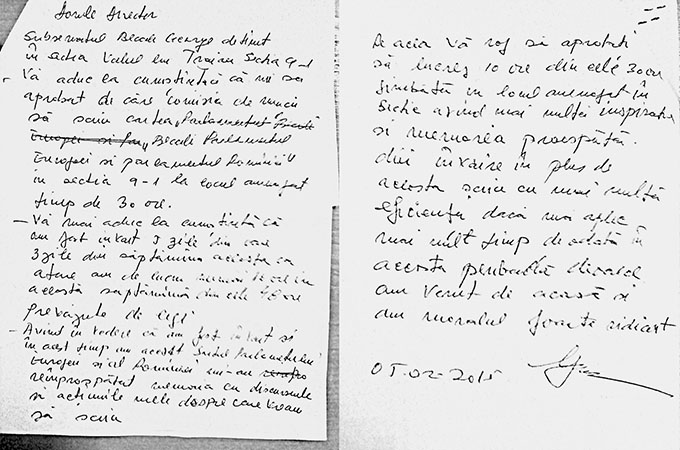 Domle Director
Subsemnatul Becali George detinut
în sectia Valul lui Traian Sectia 9-1
- Vă aduc la cunostintă că mi sa
aprobat de căre comisia de muncă
să scriu cartea „Parlamentul
Becali Parlamentul
European si parlamentul României”
in sectia 9-1 la locul amenajat
timp de 30 ore.
- Vă mai aduc la cunostintă că
am fost invoit 5 zile din care
3 zile din săptămâna aceasta ca
atare am de lucru numai 10 ore în
această saptămână din cele 40 ore
prevăzute de lege
- Avînd în vedere că am fost învoit si
în acest timp am accesat Parlamentului
European si al României mi-am
reîmprospătat memoria cu discursurile
si actiunile mele despre care vreau
să scriu
De aceia vă rog să aprobati
să lucrez 10 ore din cele 30 ore
sîmbătă în locul amenajat în
Sectie avînd mai multă inspiratie
si memoria proaspătă.
din învoire în plus de
aceasta scriu cu mai multă
eficientă dacă mai aplic
mai mult timp deodată în
această perioadă deoarece
am venit de acasă si
am moralul foarte ridicat
05-02-2015